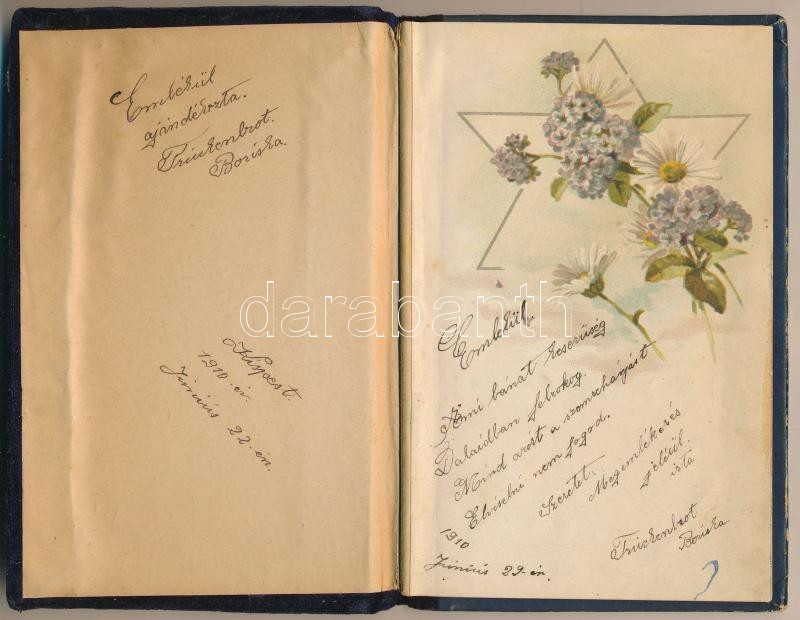 Emlékül
ajándékozta.
Trickenbrot.
Boriska.
Kispest.
1910. év.
Június 22-én.
darabanth
Emlékül.
Ami bánat keserűség
Dalaidban felzokog.
Mind azért a szomszédját
Elviselni nem fogod.
Szeretet.
Megemlékezés
jeléül.
írta
Trickenbrot
Boriska.
1910
Június 29-én.